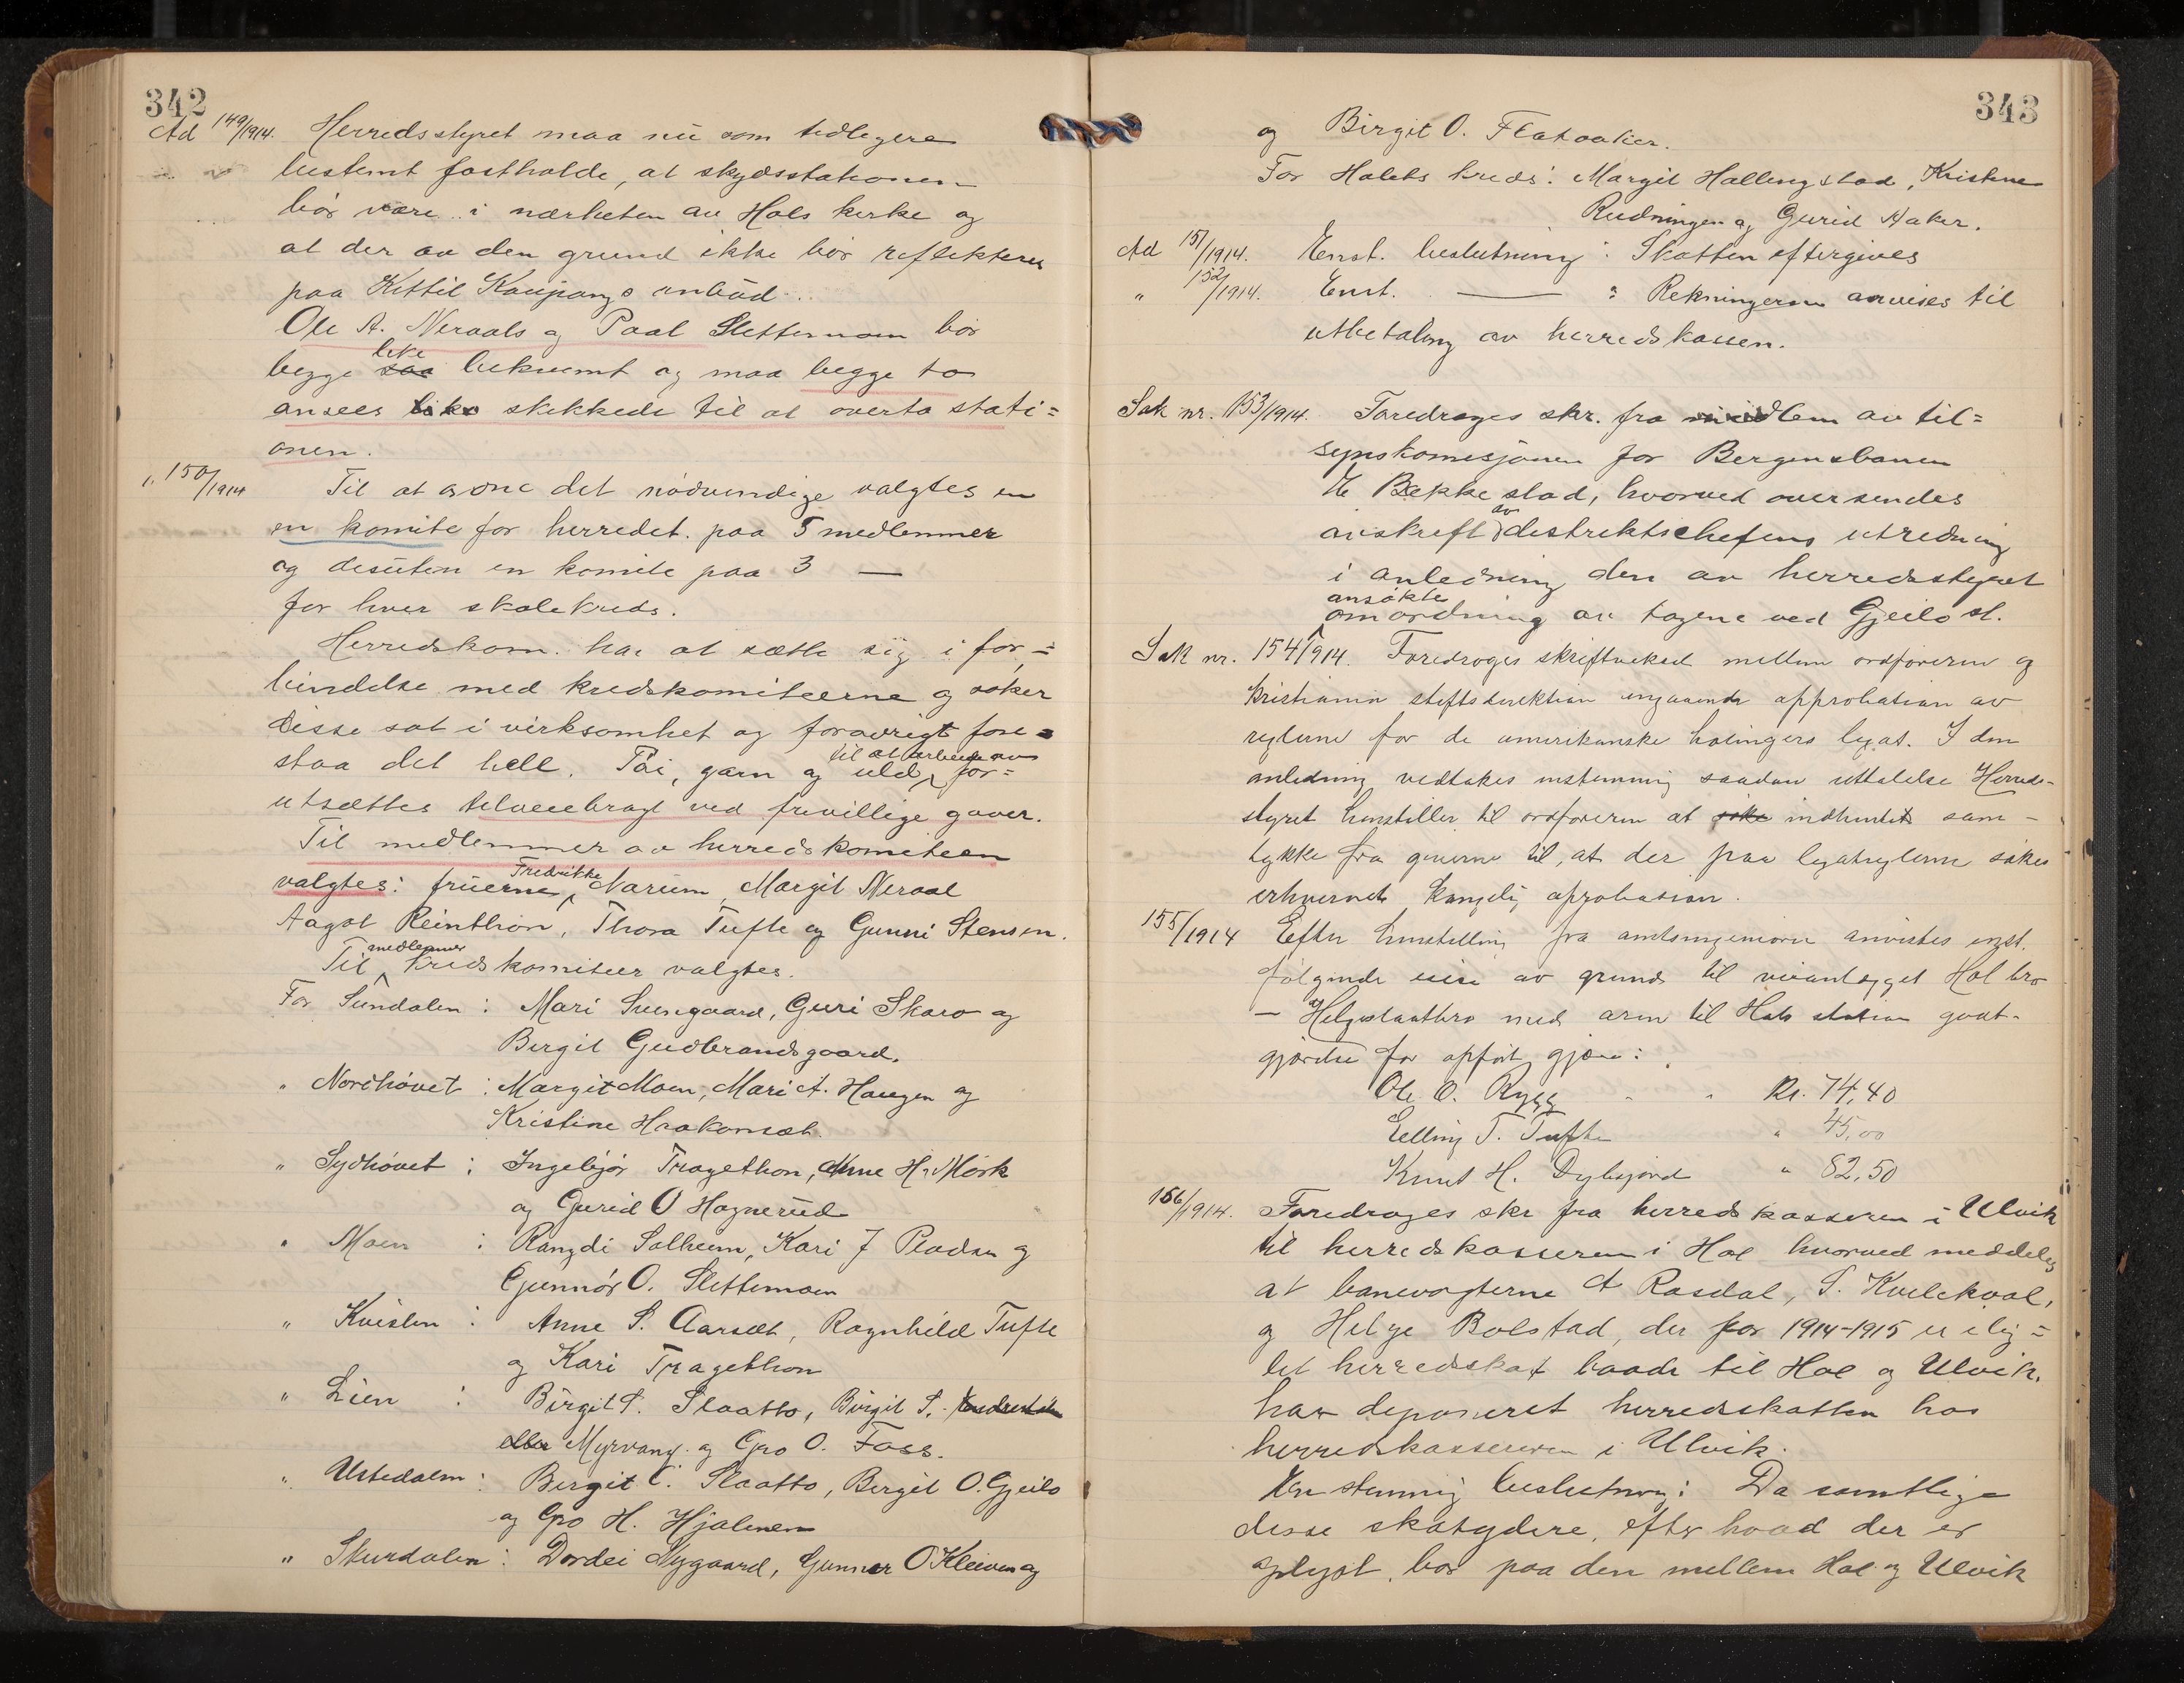 342
Ad 149/1914. Herredsstyret maa nu som tidligere
bestemt fastholde, at skydsstationen
bør være i nærheten av Hols kirke og
at der av den grund ikke bør reflekteres
paa Kittil Kaupangs anbud.
Ole A. Neraals og Paal Slettemoen bor
begge saa like bekvemt og maa begge to
ansees like skikkede til at overta stati=
onen.
" 150/1914 Til at ordne det nødvendige valgtes en
en komite for herredet paa 5 medlemmer
og desuten en komite paa 3 —
for hver skolekreds.
Herredskom. har at sætte sig i for=
bindelse med kredskomiteerne og søker
disse sat i virksomhet og forøvrigt fore=
staa det hele. Tøi, garn og uld til at arbeide av for=
utsættes tilveiebragt ved frivillige gaver.
Til medlemmer av herredskomiteen
valgtes: fruerne Fredrikke Narum, Margit Neraal
Aagot Reinthon, Thora Tufte og Gunni Stensen.
Til medlemmer kredskomiteer valgtes.
For Sundalen: Mari Sveingaard, Guri Skaro og
Birgit Gudbrandsgaard.
" Nordhovet: Margit Moen, Mari A. Haugen og
Kristine Haakonset.
" Sydhovet: Ingebjør Tragethon, Anne H. Mørk
og Gurid O Hagnerud
" Moen: Rangdi Solheim, Kari J Pladsen og
Gunnør O. Slettemoen
" Kvislen: Anne S. Aarset, Ragnhild Tufte
og Kari Tragethon
" Lien: Birgit S. Slaatto, Birgit S.
eller Myrvang og Gro O. Foss.
" Ustedalen: Bergit C. Slaatto, Bergit O. Gjeilo
og Gro H. Hjalmen
" Skurdalen: Dordei Nygaard, Gunnor O Kleiven og
343
og Birgit O. Flataaker.
For Holets kreds: Margit Hallingstad, Kristine
Rudningen og Gurid Aaker.
Ad 151/1914. Enst. beslutning: Skatten eftergives
" 152/1914. Enst. — : Rekningerne anvises til
utbetaling av herredskassen.
Sak nr. 153/1914. Foredroges skr. fra medlem av til=
synskomisjonen for Bergensbanen
H Bækkestad, hvorved oversendes
avskrift av distriktschefens utredning
i anledning den av herredsstyret
ansøkte omordning av togene ved Gjeilo st.
Sak nr. 154/1914. Foredroges skriftveksel mellem ordføreren og
Kristiania stiftsdirektion angaaende approbation av
reglerne for de amerikanske holingers legat. I den
anledning vedtokes enstemmig saadan uttalelse Herreds-
styret henstiller til ordføreren at søke indhentet sam-
tykke fra giverne til, at der paa legatreglerne søkes
erhvervet kongelig aprobation.
155/1914 Efter henstilling fra amtsingeniøren anvistes enst.
følgende eiere av grund til veianlægget Hol bro
— Helgeslaatbro med arm til Hols station godt-
gjørelse for opført gjærde:
Ole O. Rygg " " Kr. 74,40
Elling T. Tufte " 45,00
Knut H. Dybsjord " 82,50
156/1914. Foredroges skr fra herredskasseren i Ulvik
til herredskasseren i Hol hvorved meddeles
at banevogterne A Rasdal, S. Kvilekval,
og Helge Bolstad, der for 1914-1915 er ilig=
let herredskat baade til Hol og Ulvik,
har deponeret herredskatten hos
herredskassereren i Ulvik.
Enstemmig beslutning: Da samtlige
disse skatydere, efter hvad der er
oplyst, bor paa den mellem Hol og Ulvik